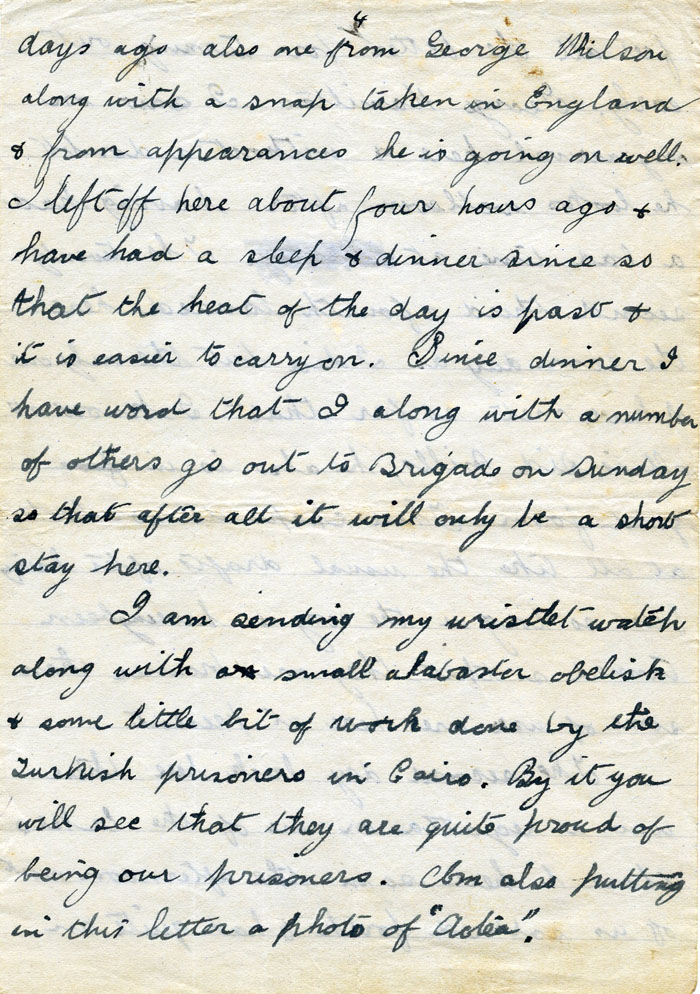 4
days ago also one from George Wilson
along with a snap taken in England
& from appearances he is going on well.
I left off here about four hours ago &
have had a sleep & dinner since so
that the heat of the day is past &
it is easier to carry on. Since dinner I
have word that I along with a number
of others go out to Brigade on Sunday
so that after all it will only be a short
stay here.
I am sending my wristlet watch
along with a small alabaster obelisk
& some little bit of work done by the
Turkish prisoners in Cairo. By it you
will see that they are quite proud of
being our prisoners. Am also putting
in this letter a photo of "Aotea".